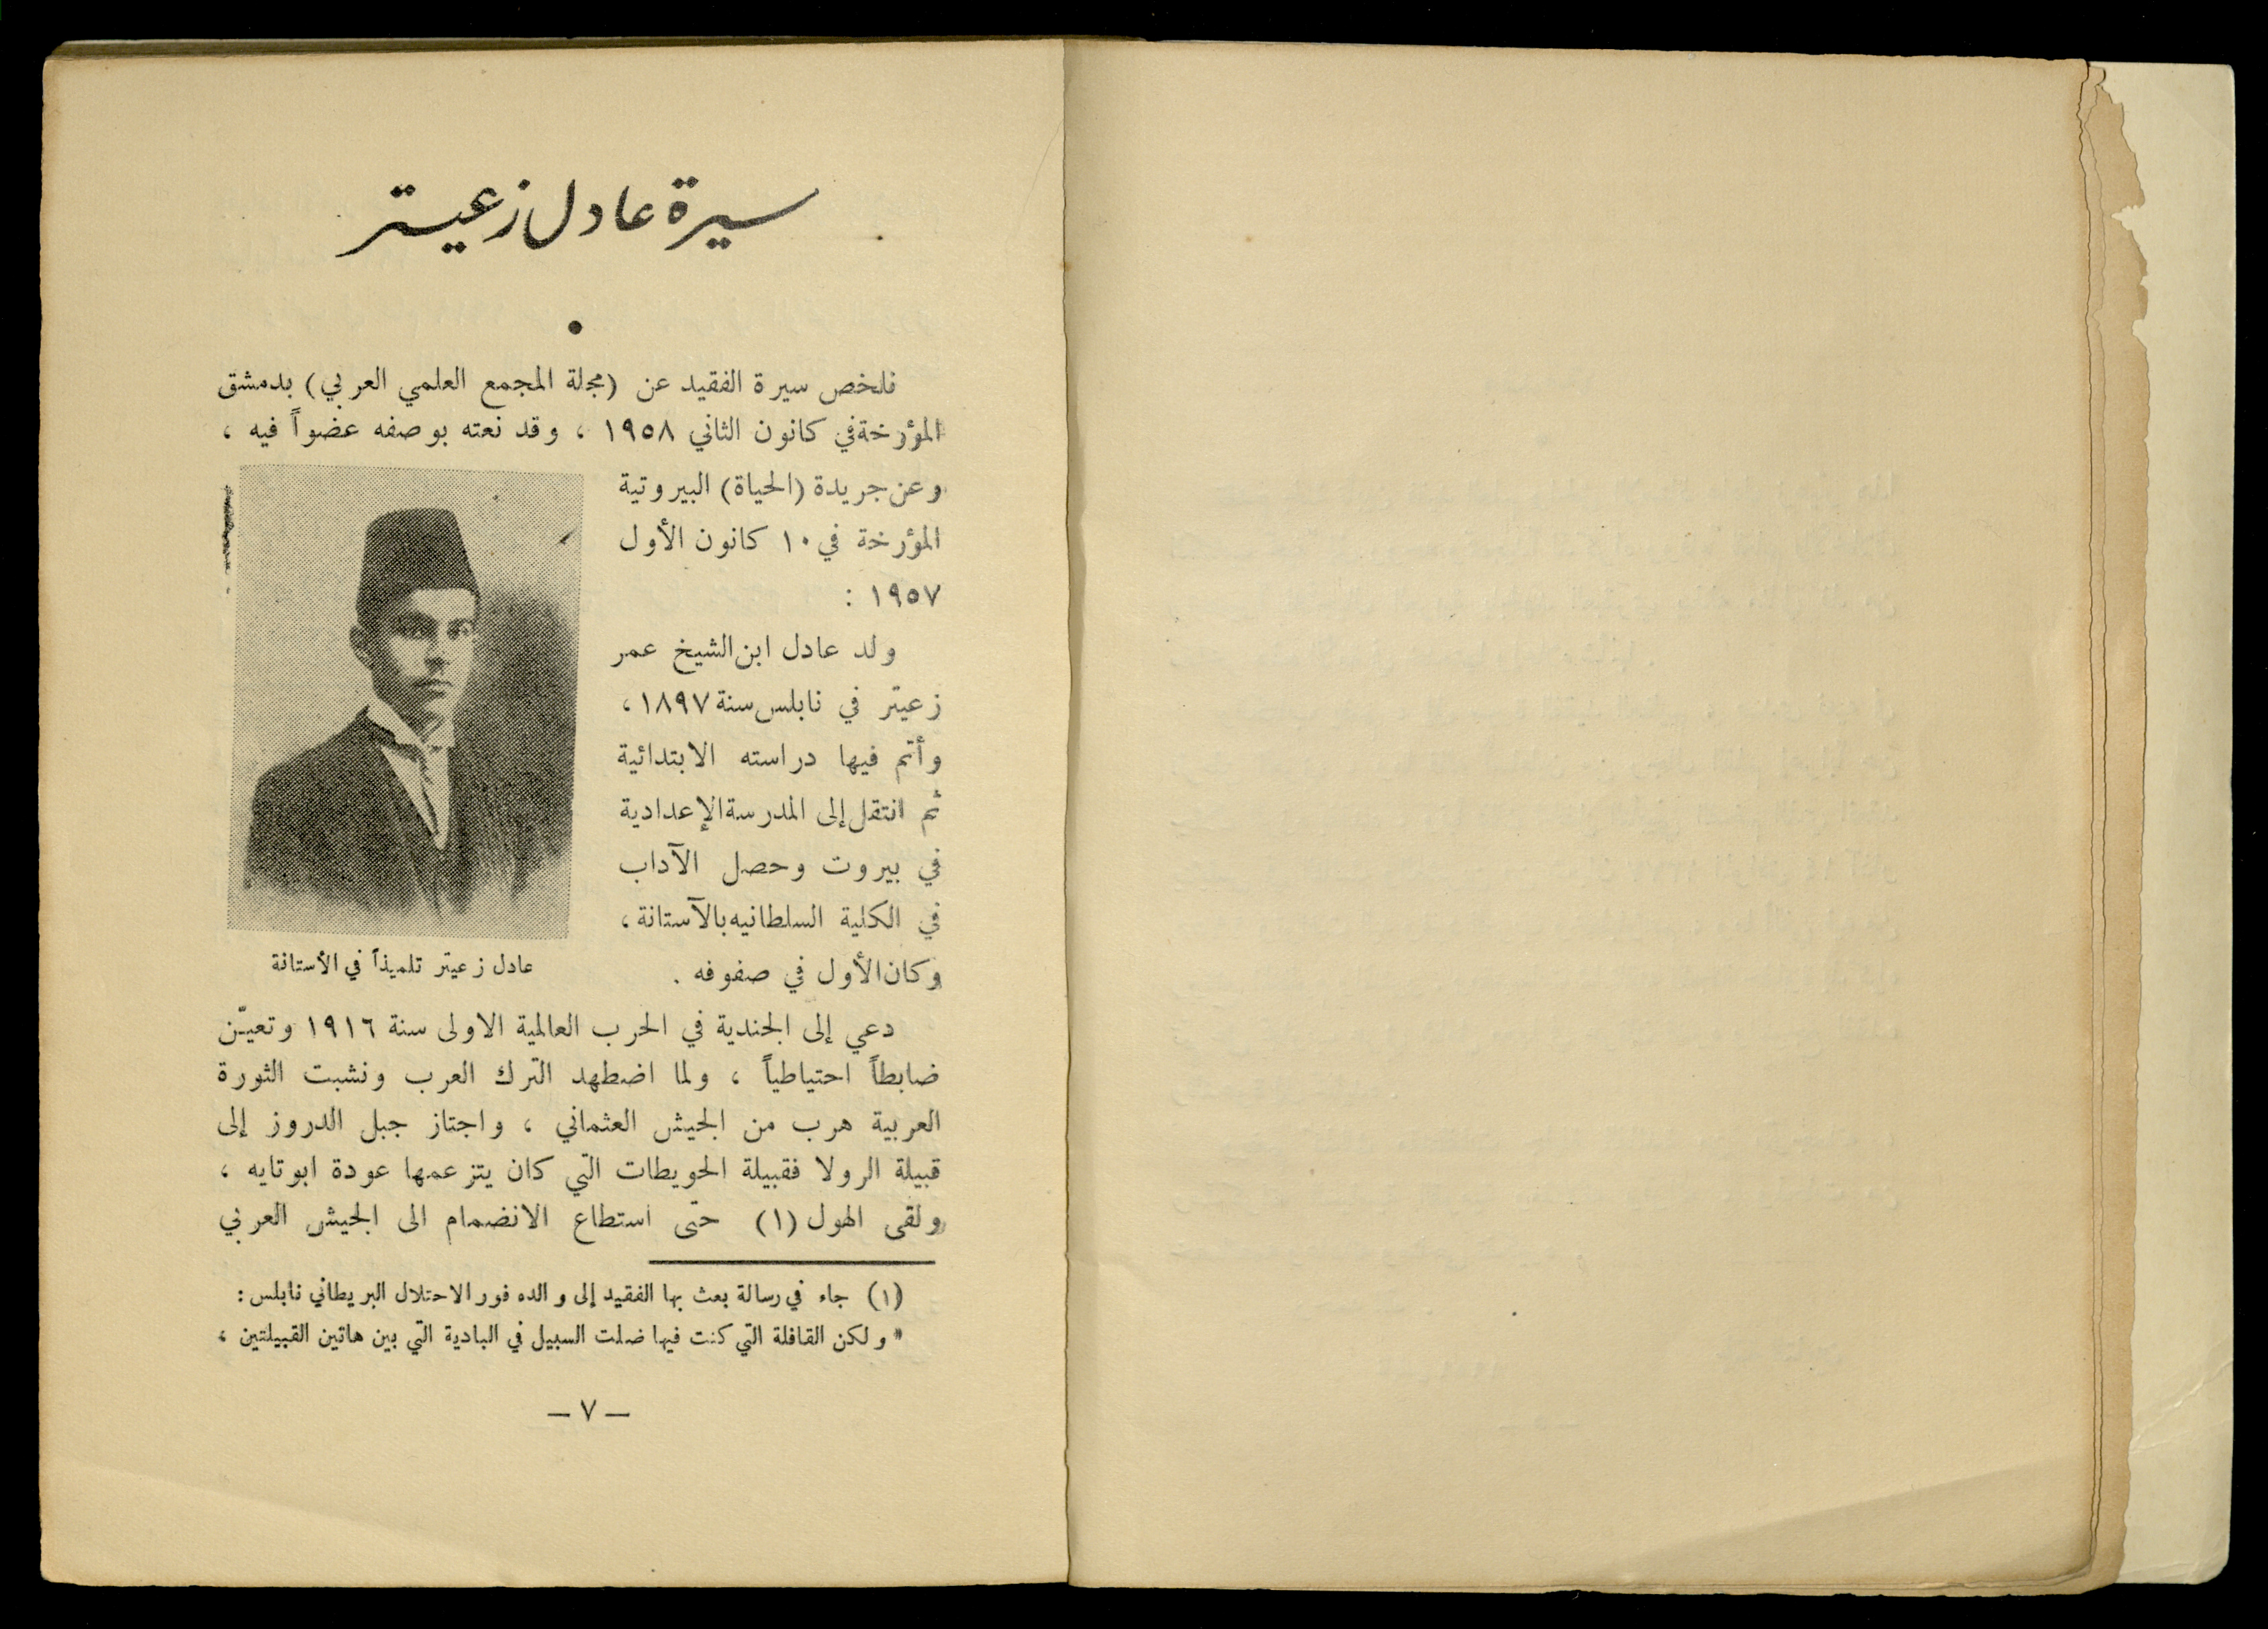 سيرة عادل زعيتر
•
نلخص سيرة الفقيد عن (مجلة المجمع العلمي العربي) بدمشق
المؤرخة في كانون الثاني ١٩٥٨ ، وقد نعته بوصفه عضواً فيه ،
وعن جريدة (الحياة) البيروتية
المؤرخة في ١٠ كانون الأول
١٩٥٧ :
ولد عادل ابن الشيخ عمر
زعيتر في نابلس سنة ١٨٩٧ ،
وأتم فيها دراسته الابتدائية
ثم انتقل إلى المدرسة الإعدادية
في بيروت وحصل الآداب
في الكلية السلطانيه بالآستانة ،
وكان الأول في صفوفه .
عادل زعيتر تلميذاً في الأستانة
دعي إلى الجندية في الحرب العالمية الاولى سنة ١٩١٦ وتعيّن
ضابطاً احتياطياً ، ولما اضطهد الترك العرب ونشبت الثورة
العربية هرب من الجيش العثماني ، واجتاز جبل الدروز إلى
قبيلة الرولا فقبيلة الحويطات التي كان يتزعمها عودة ابو تايه ،
ولقى الهول (١) حتى استطاع الانضمام الى الجيش العربي
(١) جاء في رسالة بعث بها الفقيد إلى والده فور الاحتلال البريطاني نابلس :
" ولكن القافلة التي كنت فيها ضلت السبيل في البادية التي بين هاتين القبيلتين ،
— ٧ —